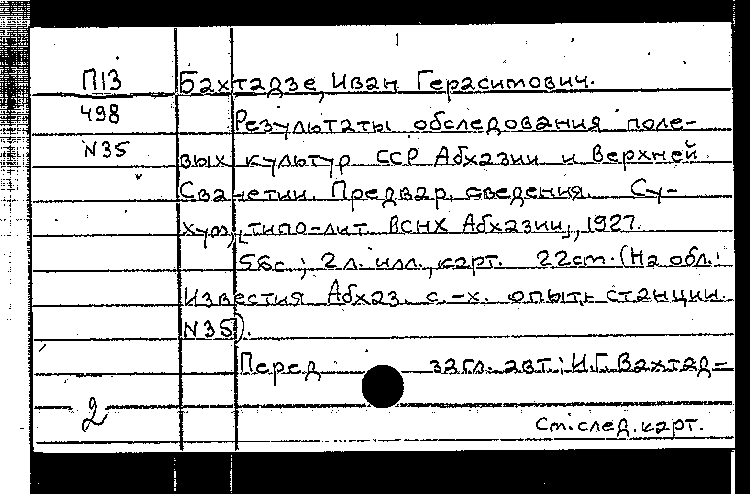 П13 Бахтадзе, Иван Герасимович.
498 Результаты обследования поле-
N35 вых культур ССР Абхазии и Верхней
Сванетии. Предвар. сведения. Су-
хум, [типо-лит. ВСНХ Абхазии], 1927.
56с.; 2л. илл., карт. 22см. (На обл.:
Известия Абхаз. с.-х. опытн. станции.
N35).
Перед загл. авт.: И.Г. Вахтад-
2
См. след. карт.